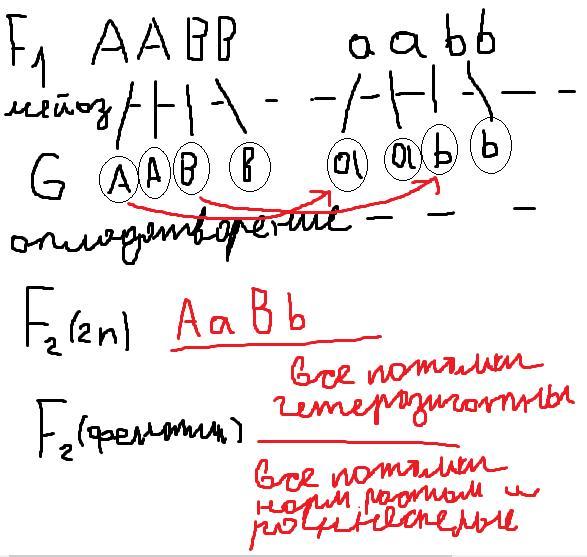 F1 AABB aabb
мейоз
G A A B B a a b b
оплодотворение
F2 (2n) AaBb
все потомки
гетерозиготны
F2 (фенотип)
все потомки
норм. ростом и